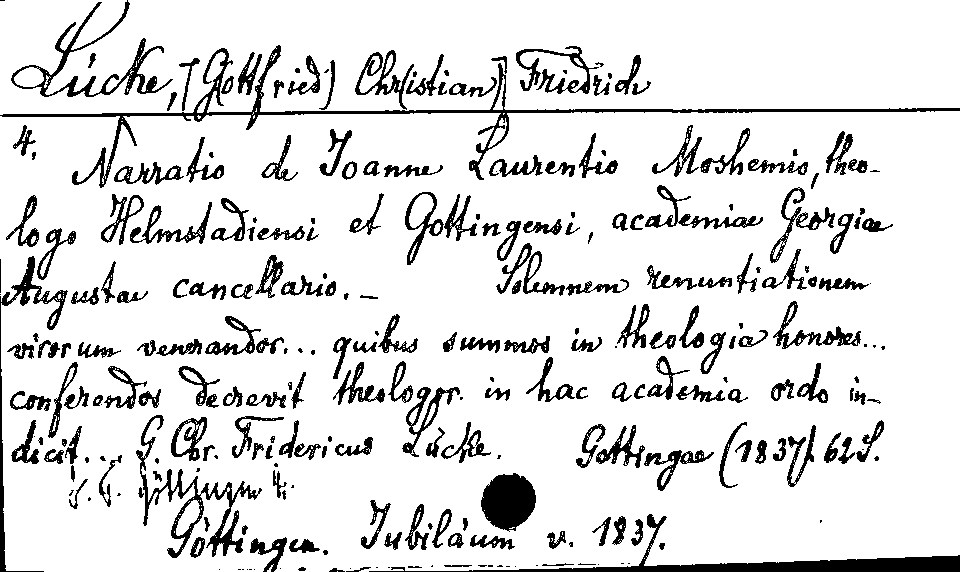 Lücke, [G(ottfried) Chr(istian)] Friedrich
4.
Narratio de Joanne Laurentio Moshemio, theo-
logo Helmstadiensi et Gottingensi, academiae Georgiae
Augustae cancellario. – Solemnem renuntiationem
virorum venerandor... quibus summos in theologia honores...
conferendos decrevit theologor. in hac academia ordo in-
dicit... G. Chr. Fridericus Lücke. Gottingae (1837). 62 S.
Göttingen. Jubiläum v. 1837.